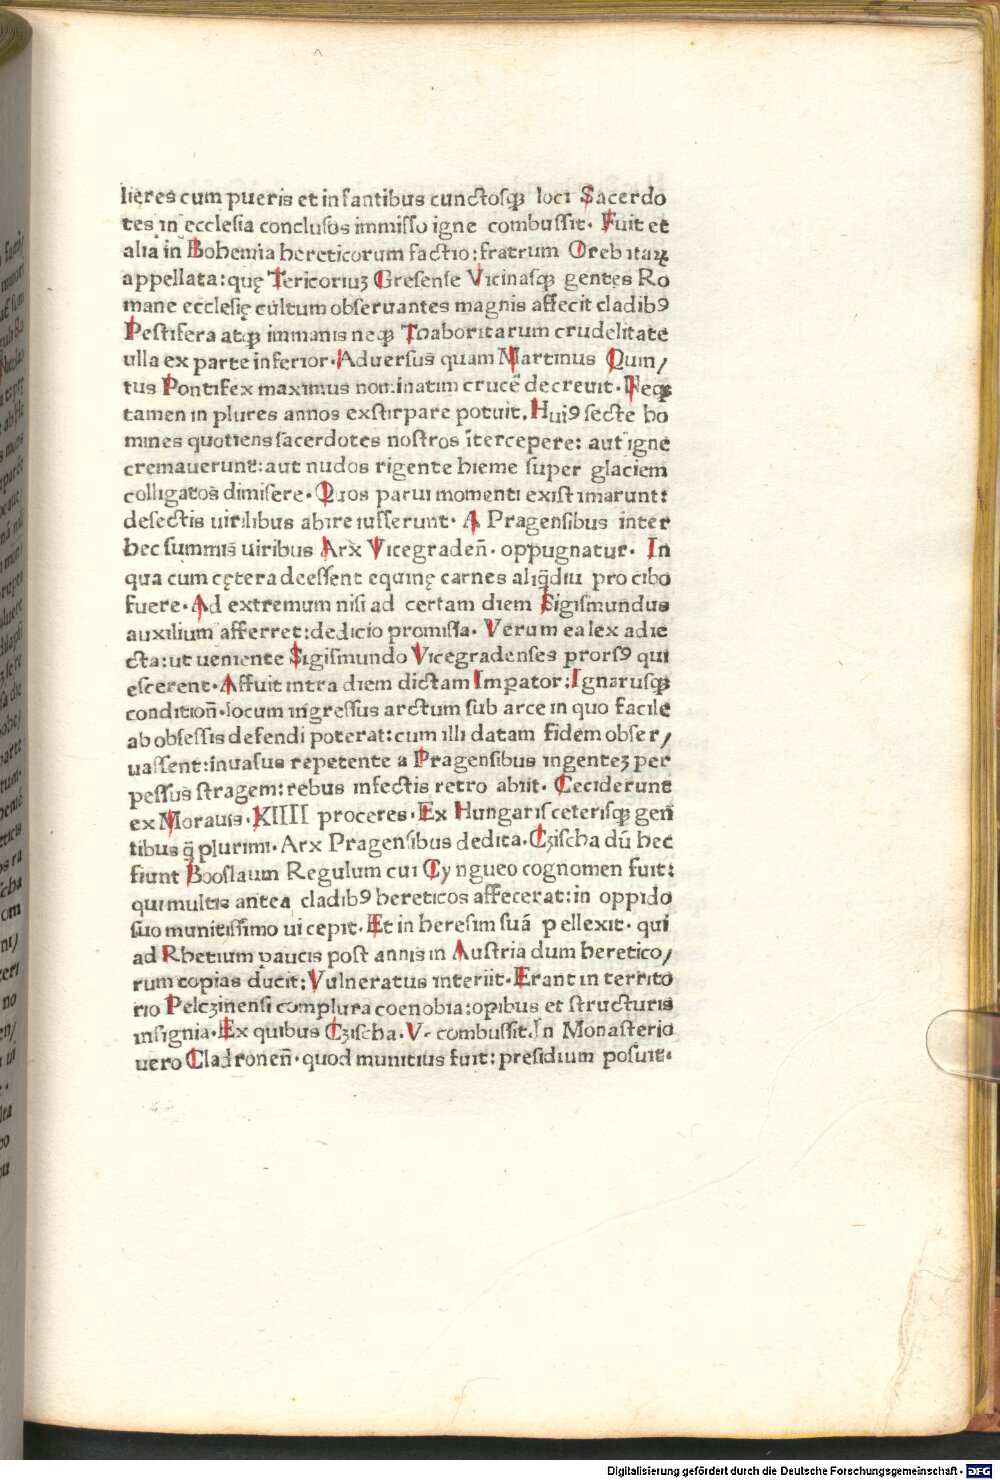 lieres cum pueris et infantibus cunctosqꝫ loci Sacerdo
tes in ecclesia conclusos immisso igne combussit. Fuit et
alia in Bohemia hereticorum factio: fratrum Orebitaꝝ
appellata: quę Tericoriuꝫ Gresense Vicinasqꝫ gentes Ro
mane ecclesię cultum obseruantes magnis affecit cladibꝰ
Pestifera atqꝫ immanis neqꝫ Thaboritarum crudelitate
ulla ex parte inferior. Aduersus quam Martinus Quin/
tus Pontifex maximus nominatim crucē decreuit. Neqꝫ
tamen in plures annos exstirpare potuit. Huiꝰ secte ho
mines quotiens sacerdotes nostros ītercepere: aut igne
cremauerunt: aut nudos rigente hieme super glaciem
colligatos dimisere. Quos parui momenti existimarunt:
desectis uirilibus abire iusserunt. A Pragensibus inter
hec summis uiribus Arx Vicegradeñ. oppugnatur. In
qua cum cętera deessent equinę carnes aliq̄diu pro cibo
fuere. Ad extremum nisi ad certam diem Sigismundus
auxilium afferret: dedicio promissa. Verum ea lex adie
cta: ut ueniente Sigismundo Vicegradenses prorsꝰ qui
escerent. Affuit intra diem dictam Imꝑator: Ignarusqꝫ
conditioñ. locum ingressus arctum sub arce in quo facile
ab obsessis defendi poterat: cum illi datam fidem obser/
uassent: inuasus repetente a Pragensibus ingenteꝫ per
pessus stragem: rebus infectis retro abiit. Ceciderunt
ex Morauis. XIIII proceres. Ex Hungaris ceterisqꝫ gen
tibus q̄ plurimi. Arx Pragensibus dedita. Czischa dū hec
fiunt Booslaum Regulum cui Cyngueo cognomen fuit:
qui multis antea cladibꝰ hereticos affecerat: in oppido
suo munitissimo ui cepit. Et in heresim suā pellexit. qui
ad Rhetium paucis post annis in Austria dum heretico/
rum copias ducit: Vulneratus interiit. Erant in territo
rio Pelczinensi complura coenobia: opibus et structuris
insignia. Ex quibus Czischa. V. combussit. In Monasterio
uero Cladroneñ. quod munitius fuit: presidium posuit.
Digitalisierung gefördert durch die Deutsche Forschungsgemeinschaft - DFG